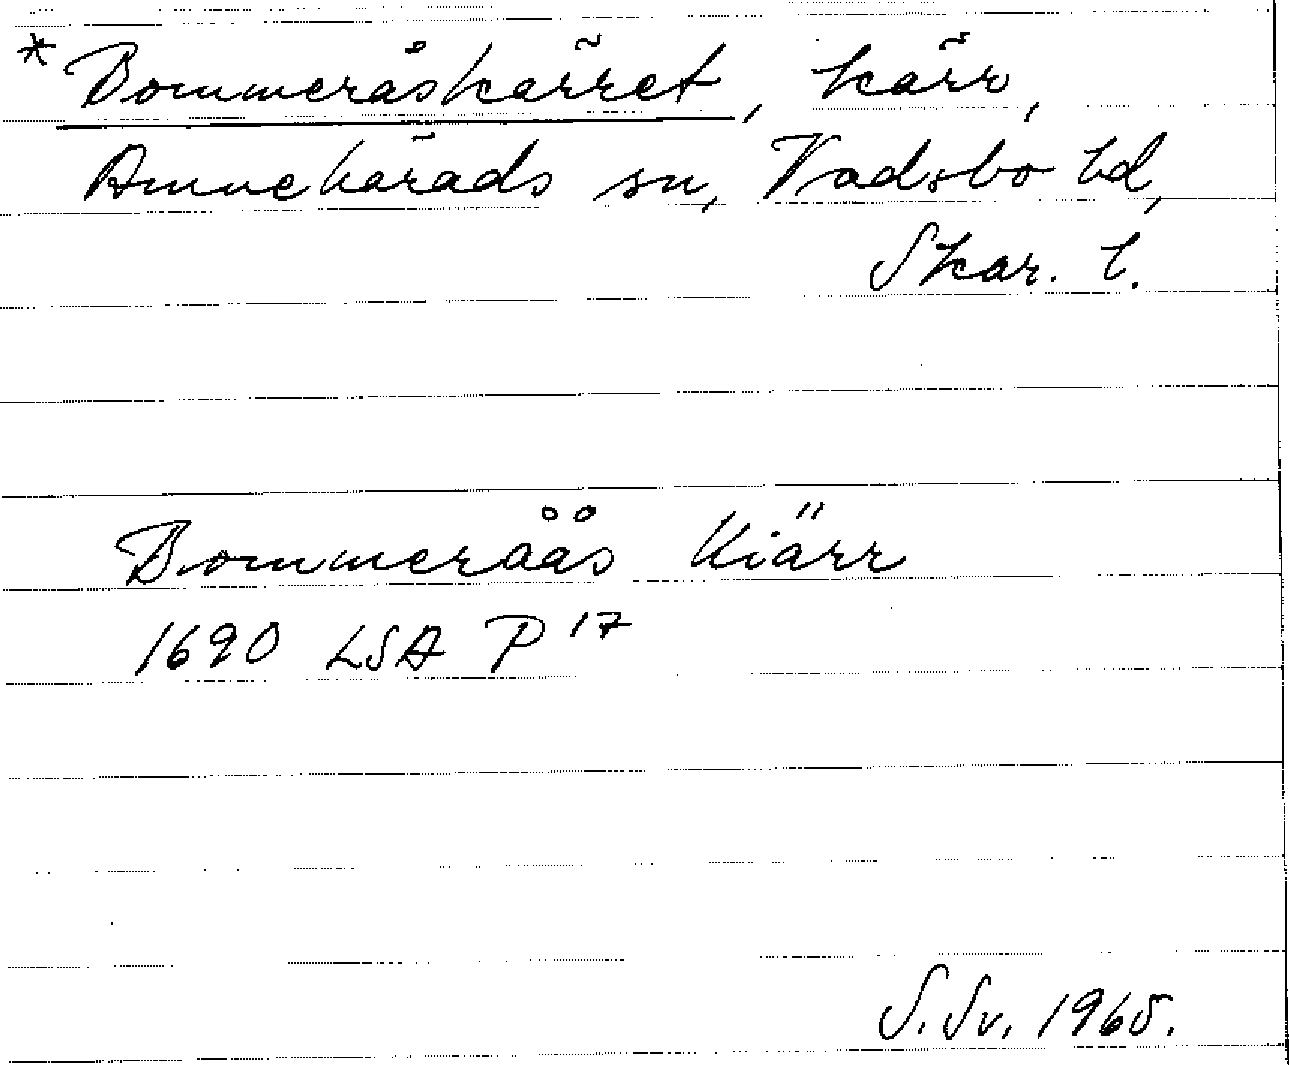 *Bommeråskärret, kärr,
Amnehärads sn, Vadsbo hd,
Skar. l.
Bommeråås Kiärr
1690 LSA P 17
S. Sv. 1965.